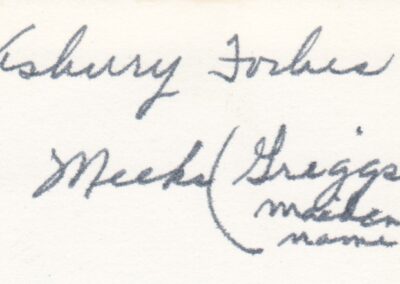 Asbury Forbes
Meeks (Griggs
maiden
name